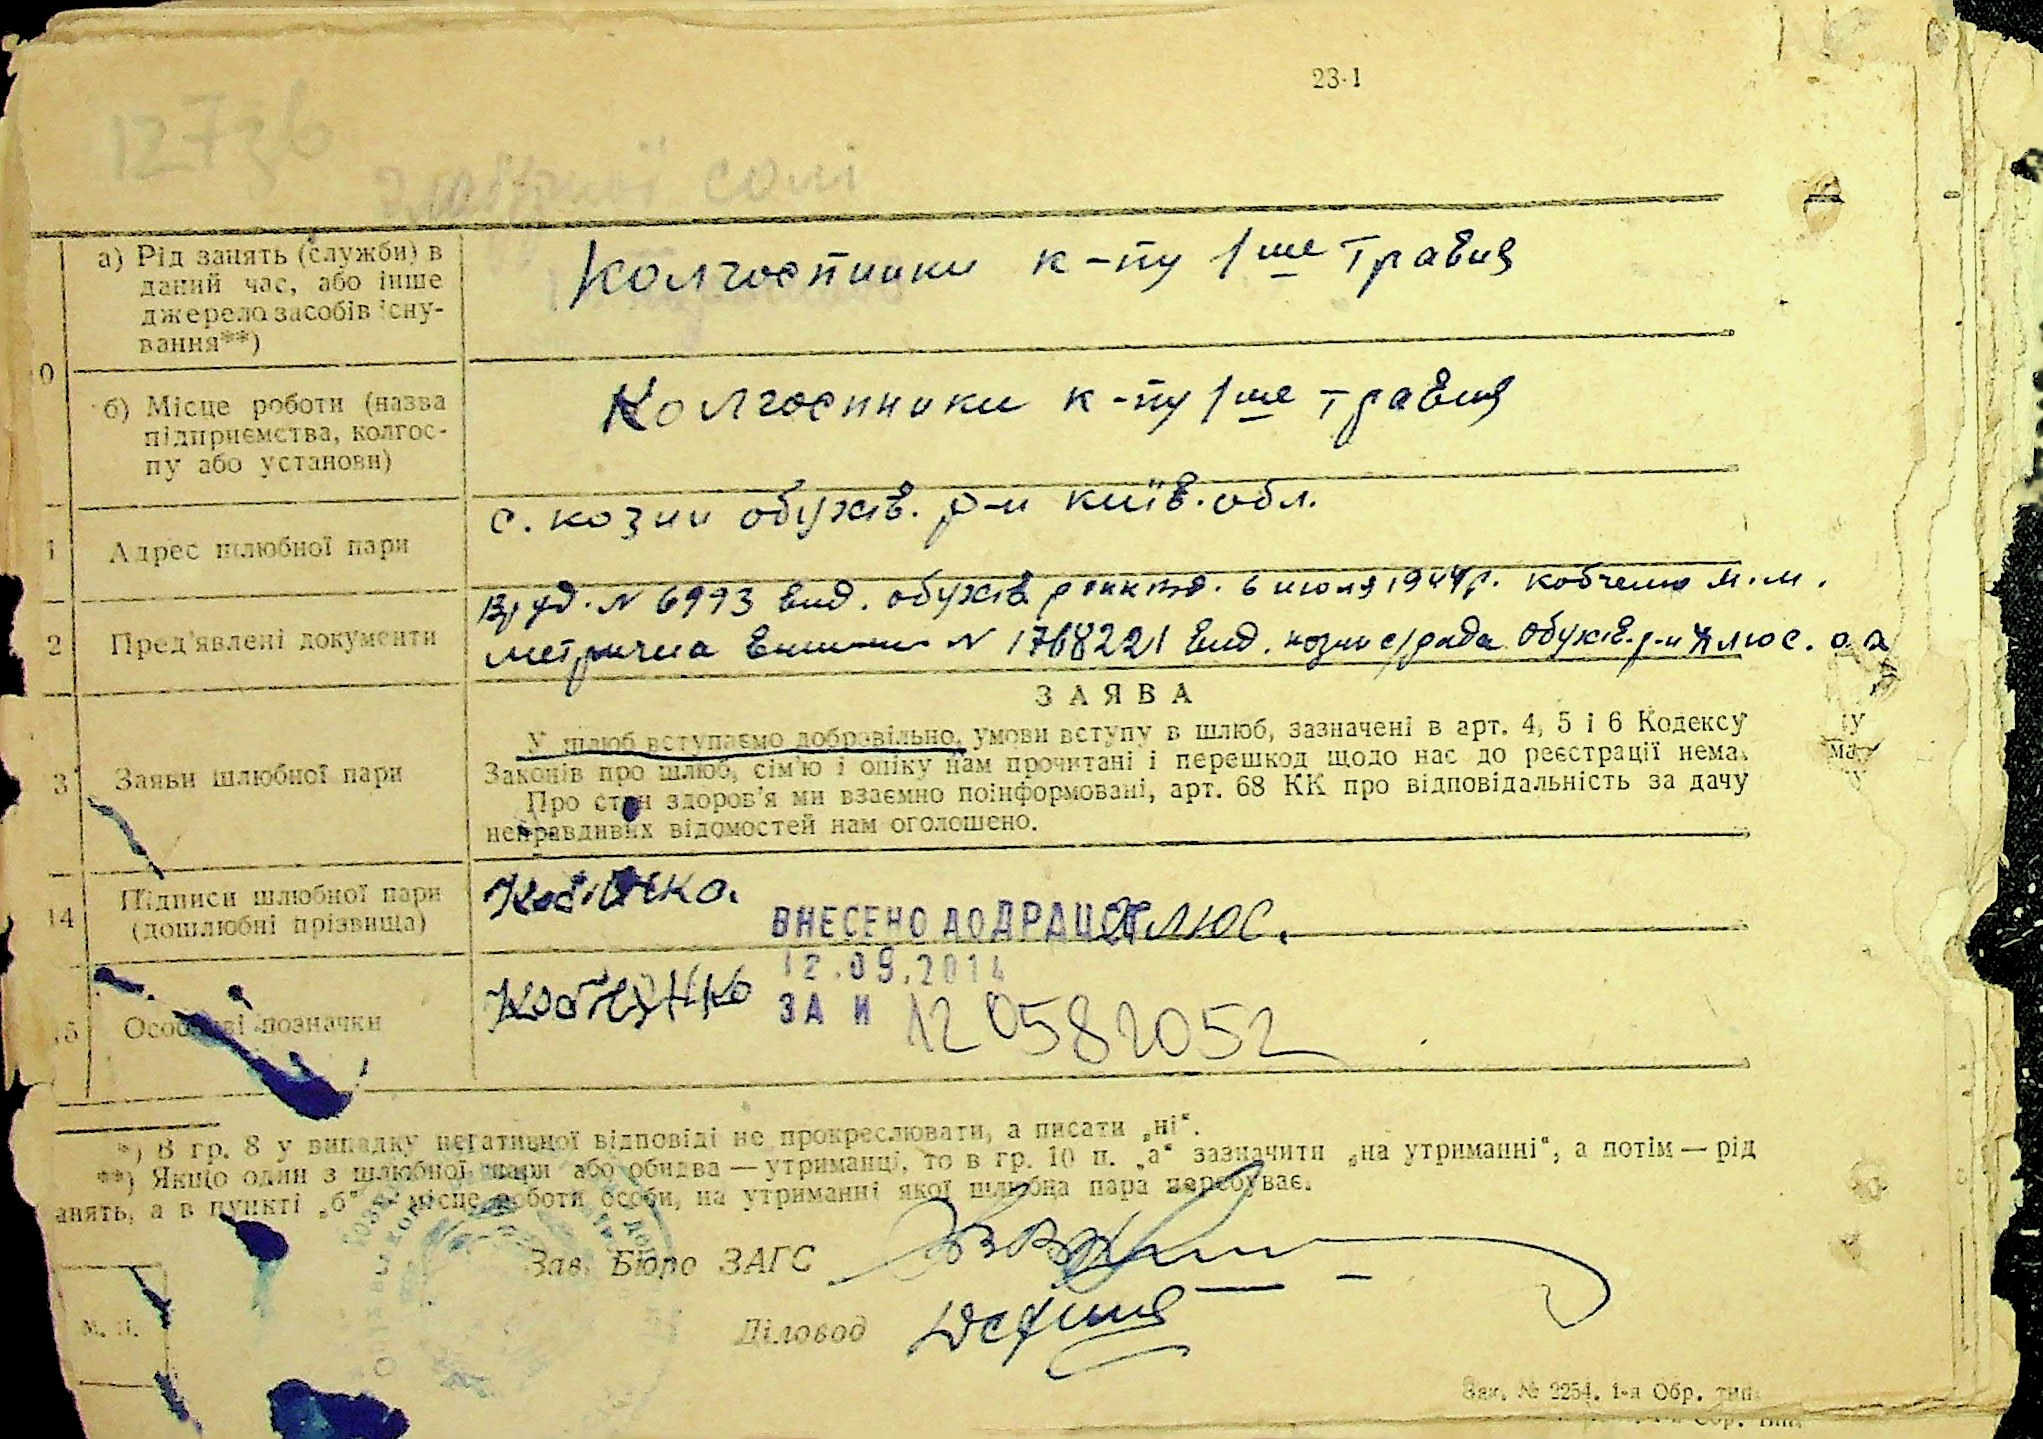 23-1
а) Рід занять (служби) в
даний час, або інше
джерело засобів існу-
вання**)
Колгоспники к-пу 1ше травня
0
б) Місце роботи (назва
підприємства, колгос-
пу або установи)
Колгоспники к-пу 1ше травня
1
Адрес шлюбної пари
с. козин обухів. р-н київ. обл.
2
Пред'явлені документи
6993 вид. обухів 6 июля 1944р. кобченко М.М.
метрична N 1768221 вид. с/рада Обухів. р-н Плюс.
3
Заяви шлюбної пари
ЗАЯВА
У шлюб вступаємо добровільно, умови вступу в шлюб, зазначені в арт. 4, 5 і 6 Кодексу
Законів про шлюб, сім'ю і опіку нам прочитані і перешкод щодо нас до реєстрації нема.
Про стан здоров'я ми взаємно поінформовані, арт. 68 КК про відповідальність за дачу
неправдивих відомостей нам оголошено.
14
Підписи шлюбної пари
(дошлюбні прізвища)
Плюс.
ВНЕСЕНО ДО ДРАЦС
12.09.2014
ЗА N
15
Особливі позначки
*) В гр. 8 у випадку негативної відповіді не прокреслювати, а писати „ні“.
**) Якщо один з шлюбної пари або обидва — утриманці, то в гр. 10 п. „а“ зазначити „на утриманні“, а потім — рід
анять, а в пункті „б“ місце роботи особи, на утриманні якої шлюбна пара перебуває.
Зав. Бюро ЗАГС
Діловод
М. П.
Зак. № 2254. 1-я Обр. тип.